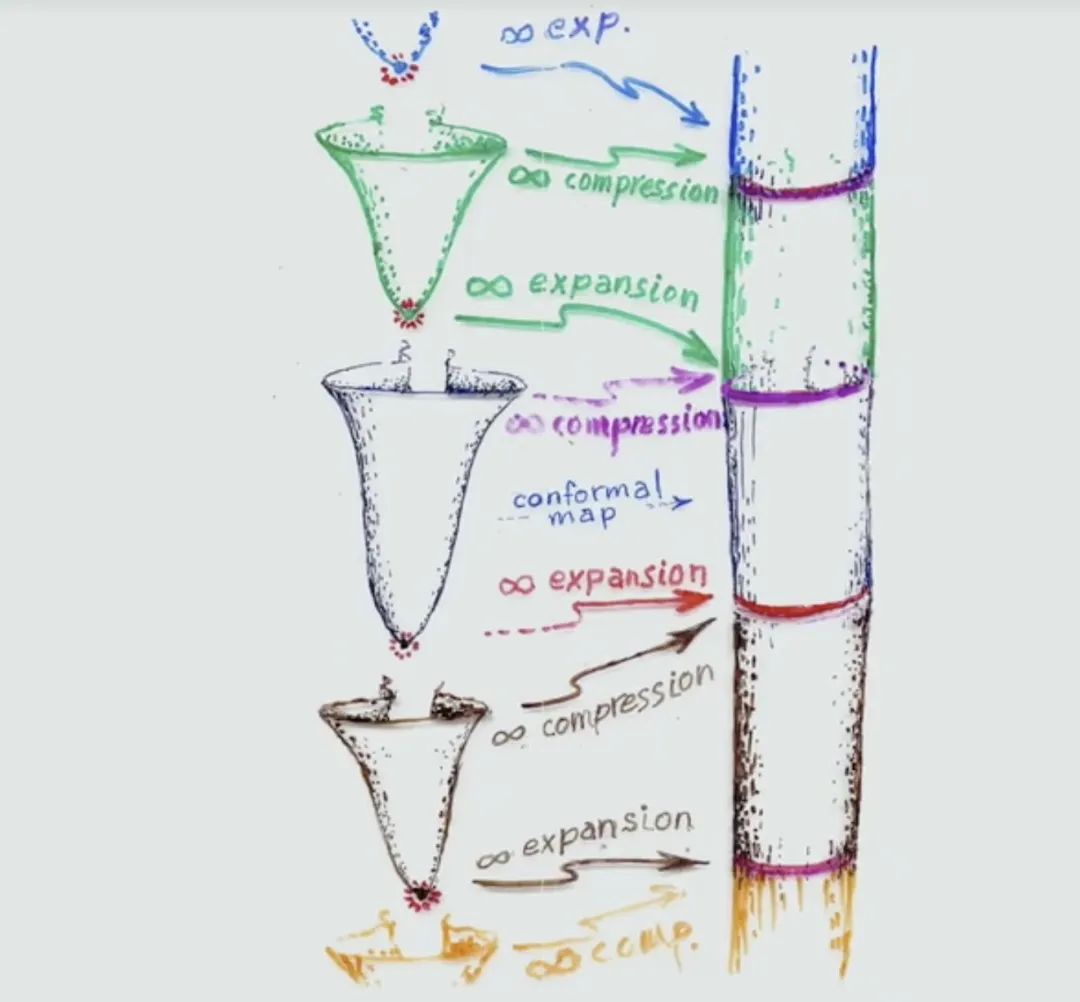 ∞ exp.
∞ compression
∞ expansion
∞ compression
conformal
map
∞ expansion
∞ compression
∞ expansion
∞ comp.